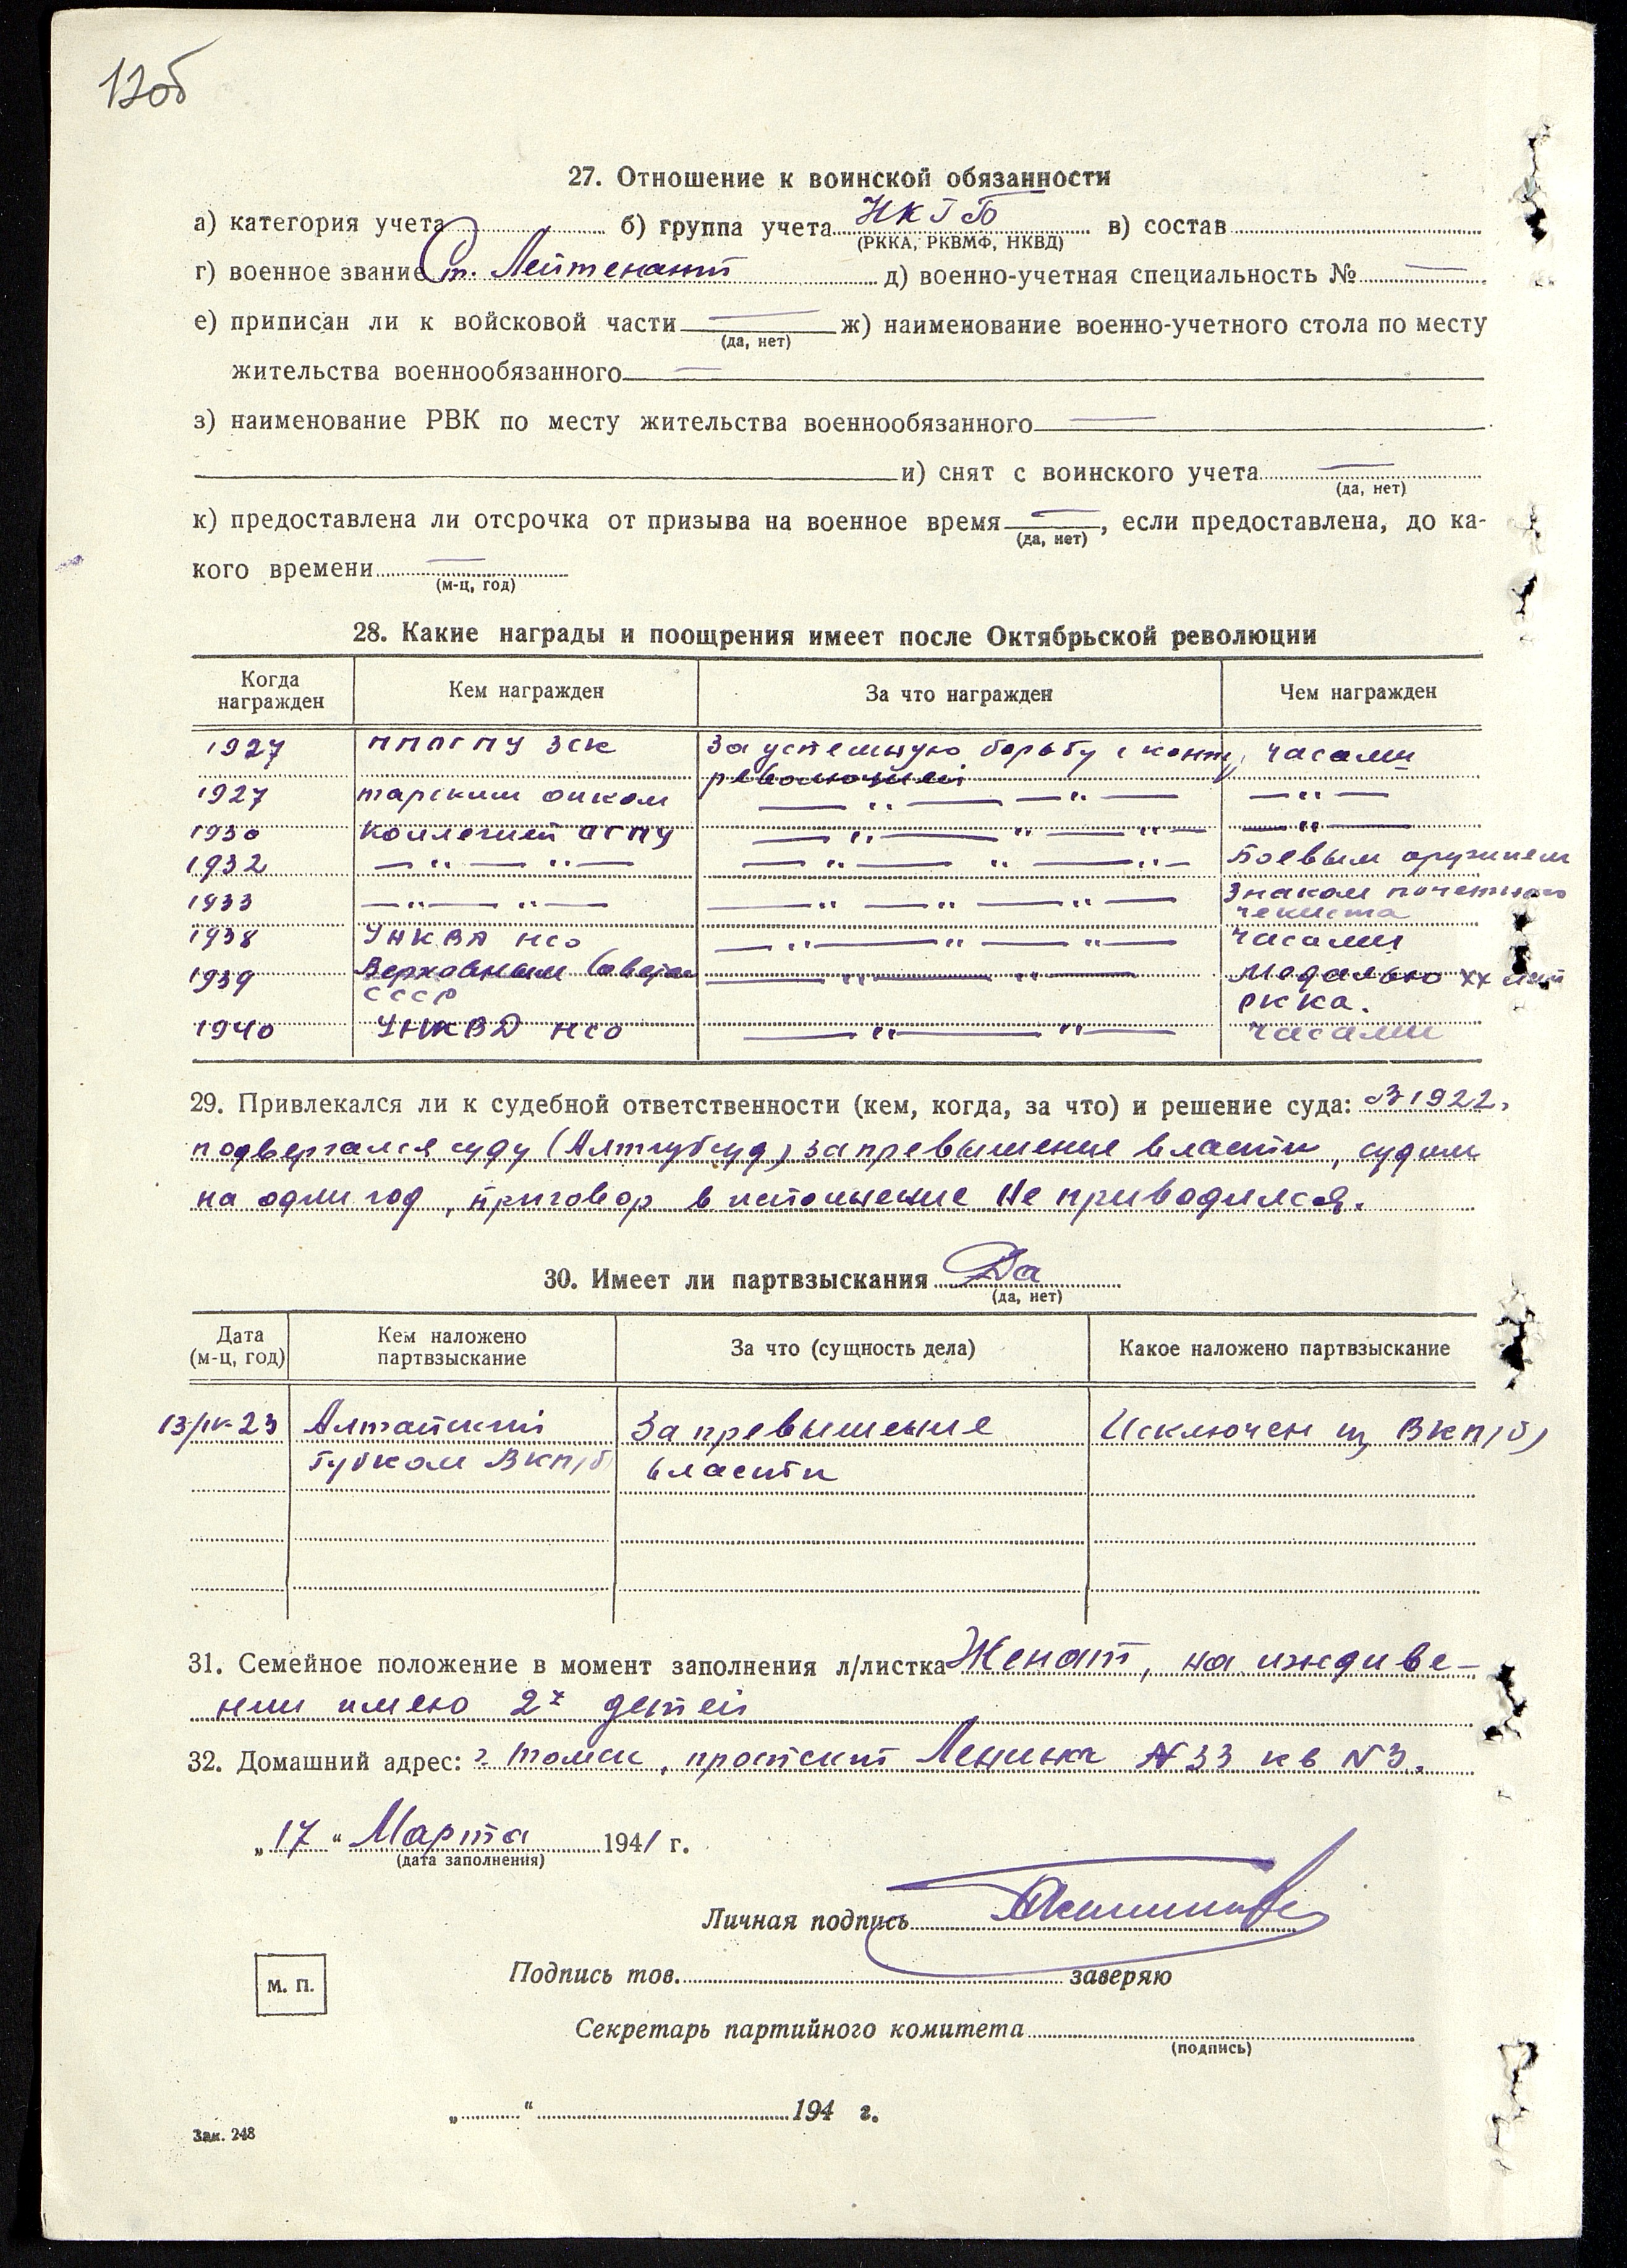 12об
27. Отношение к воинской обязанности
а) категория учета б) группа учета НКГБ в) состав
(РККА, РКВМФ, НКВД)
г) военное звание Ст. Лейтенант д) военно-учетная специальность № —
е) приписан ли к войсковой части — ж) наименование военно-учетного стола по месту
(да, нет)
жительства военнообязанного —
з) наименование РВК по месту жительства военнообязанного —
и) снят с воинского учета —
(да, нет)
к) предоставлена ли отсрочка от призыва на военное время —, если предоставлена, до ка-
(да, нет)
кого времени —
(м-ц, год)
28. Какие награды и поощрения имеет после Октябрьской революции
Когда награжден Кем награжден За что награжден Чем награжден
1927 ППОГПУ ЗСК За успешную борьбу с контр часами
революцией
1927 тарским окиком — " — — " — — " —
1930 Коллегией ОГПУ — " — " — " — — " —
1932 — " — " — — " — " — " — Боевым оружием
1933 — " — " — — " — " — " — Знаком почетного
чекиста
1938 УНКВД НСО — " — " — " — часами
1939 Верховным Советом — " — " — Медалью XX лет
СССР РККА.
1940 УНКВД НСО — " — " — часами
29. Привлекался ли к судебной ответственности (кем, когда, за что) и решение суда: В 1922,
подвергался суду (Алтгубсуд) за превышение власти, судим
на один год, приговор в исполнение не приводился.
30. Имеет ли партвзыскания Да
(да, нет)
Дата (м-ц, год) Кем наложено партвзыскание За что (сущность дела) Какое наложено партвзыскание
13/IV-23 Алтайский За превышение Исключен из ВКП/б/
Губком ВКП/б власти
31. Семейное положение в момент заполнения л/листка Женат, на иждиве-
нии имею 2х детей
32. Домашний адрес: г. Томск, проспект Ленина № 33 кв № 3.
„17“ Марта 1941 г.
(дата заполнения)
Личная подпись
М. П.
Подпись тов. заверяю
Секретарь партийного комитета
(подпись)
„ “ 194 г.
Зак. 248